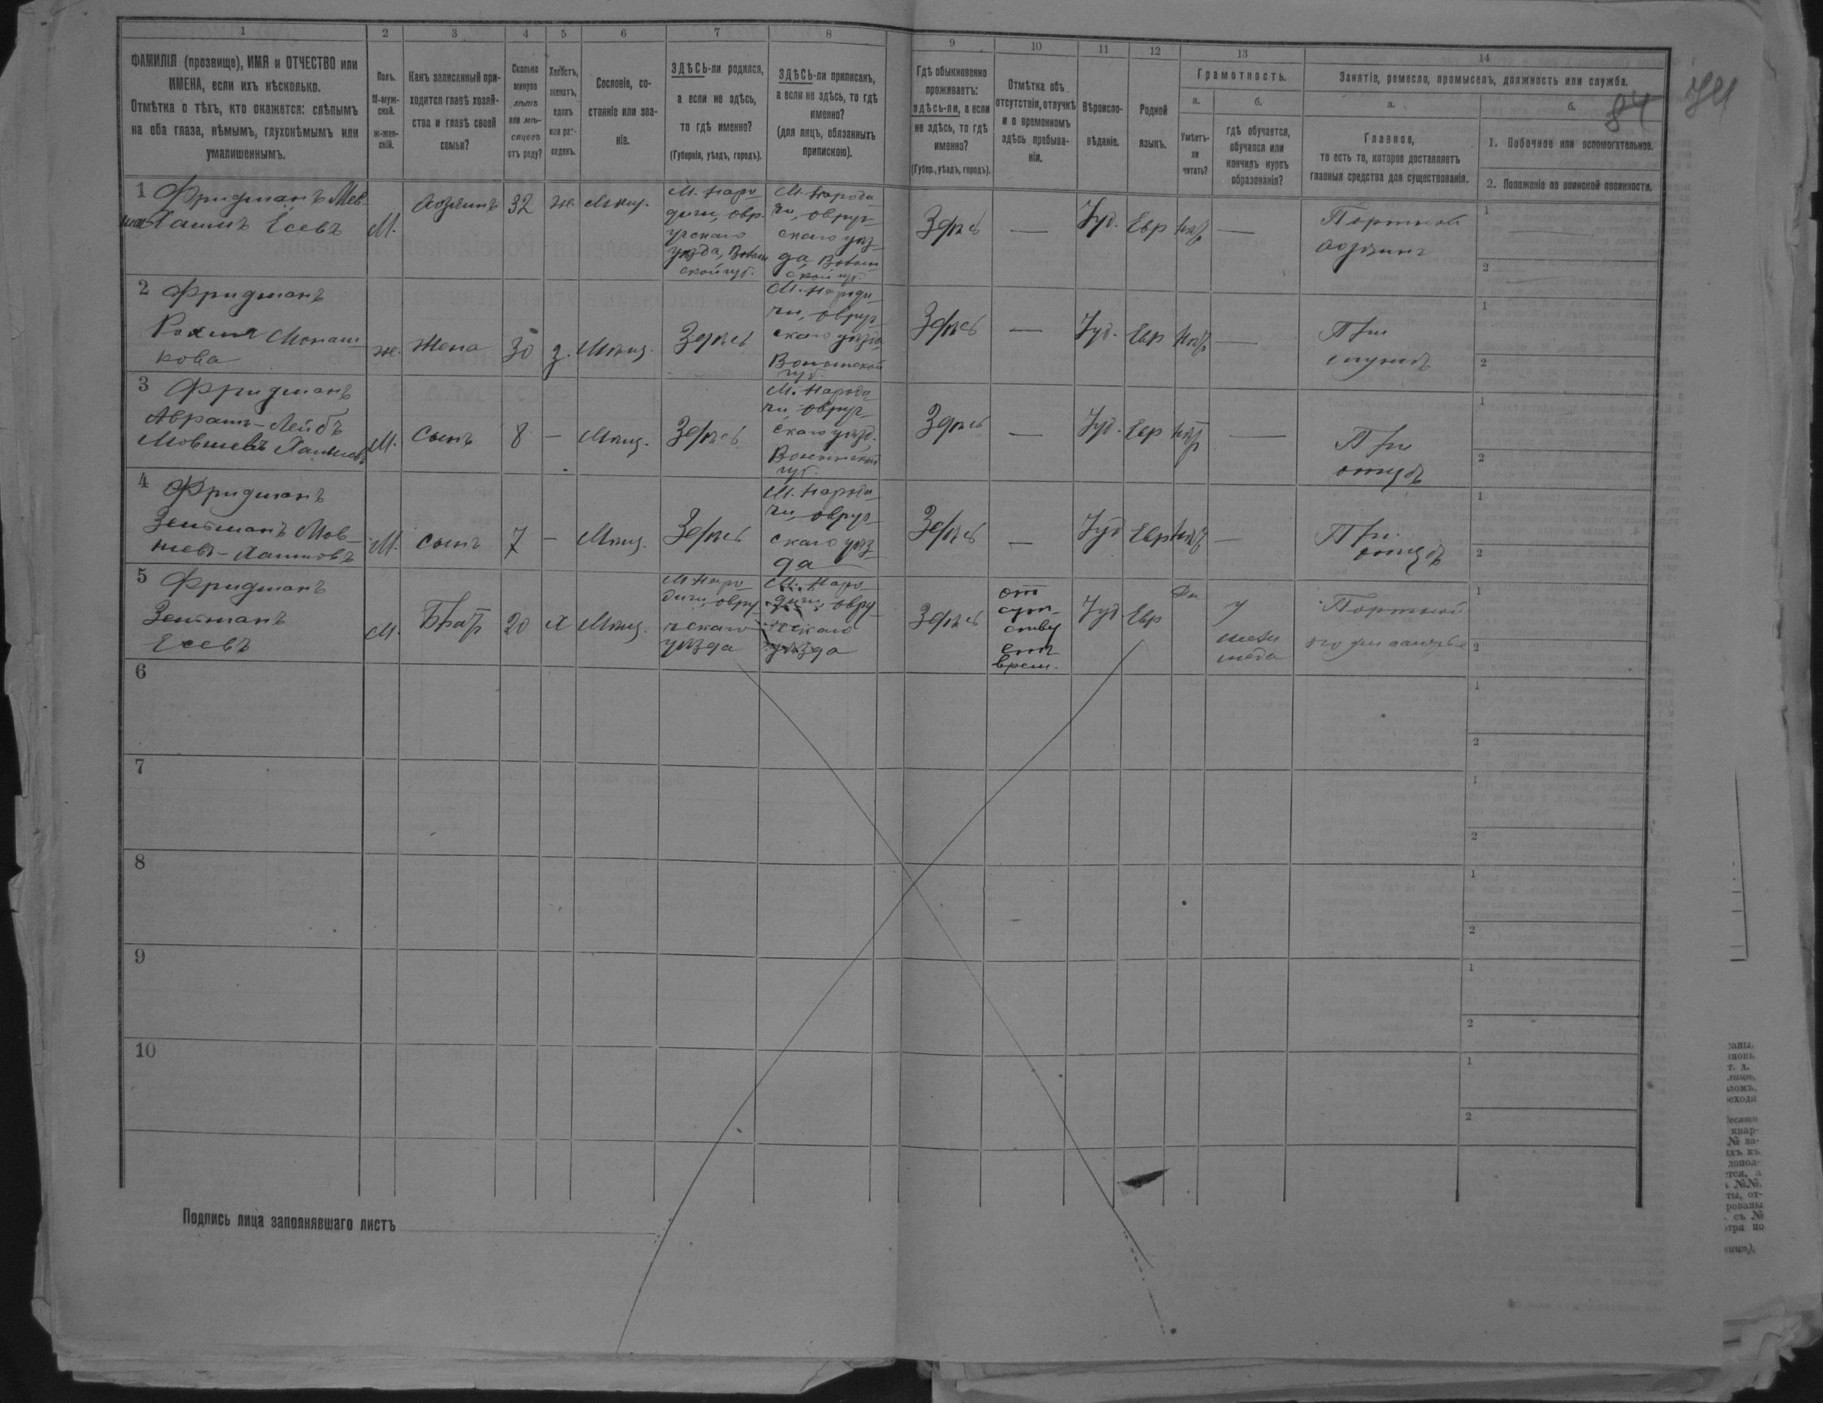 1 2 3 4 5 6 7 8 9 10 11 12 13 14
ФАМИЛІЯ (прозвище), ИМЯ и ОТЧЕСТВО или
ИМЕНА, если ихъ нѣсколько.
Отмѣтка о тѣхъ, кто окажется: слѣпымъ
на оба глаза, нѣмымъ, глухонѣмымъ или
умалишеннымъ.
Полъ.
М-муж-
ской.
ж-жен-
скій.
Какъ записанный при-
ходится главѣ хозяй-
ства и главѣ своей
семьи?
Сколько
минуло
лѣтъ
или мѣ-
сяцевъ
отъ роду?
Холостъ,
женатъ,
вдовъ
или раз-
веденъ.
Сословіе, со-
стояніе или зва-
ніе.
ЗДѢСЬ-ли родился,
а если не здѣсь,
то гдѣ именно?
(Губернія, уѣздъ, городъ).
ЗДѢСЬ-ли приписанъ,
а если не здѣсь, то гдѣ
именно?
(для лицъ, обязанныхъ
припискою).
Гдѣ обыкновенно
проживаетъ:
здѣсь-ли, а если
не здѣсь, то гдѣ
именно?
(Губер., уѣздъ, городъ).
Отмѣтка объ
отсутствіи, отлучкѣ
и о временномъ
здѣсь пребыва-
ніи.
Вѣроиспо-
вѣданіе.
Родной
языкъ.
Грамотность.
а.
Умѣетъ-
ли
читать?
б.
гдѣ обучается,
обучался или
кончилъ курсъ
образованія?
Занятіе, ремесло, промыселъ, должность или служба.
а.
Главное,
то есть то, которое доставляетъ
главныя средства для существованія.
б.
1. Побочное или вспомогательное.
2. Положеніе по воинской повинности.
84
1 Фридманъ Мов
ша Хаимъ Есевъ
М.
Хозяинъ
32
ж.
Мѣщ.
М. Наро
дичи, овр
учскаго
уѣзда, Волын
ской губ.
М. Народи
чи, овруч
скаго уѣз
да Волын
ской губ.
Здѣсь
—
Іуд.
Евр
нѣт
—
Портной
хозяинъ
1
2
2 Фридманъ
Рахиля Монаш
кова
ж.
Жена
30
з.
Мѣщ.
Здѣсь
М. Народи
чи, овруч
скаго уѣзда
Волынской
губ.
Здѣсь
—
Іуд.
Евр
нѣт
—
При
мужѣ
1
2
3 Фридманъ
Аврамъ-Лейбъ
Мовшевъ Хаимовъ
М.
сынъ
8
—
Мѣщ.
Здѣсь
М. Народи
чи, овруч
скаго уѣзд.
Волынской
губ.
Здѣсь
—
Іуд.
Евр
нѣт
—
При
отцѣ
1
2
4 Фридманъ
Зельманъ Мов-
шев-Хаимовъ
М.
сынъ
7
—
Мѣщ.
Здѣсь
М. Народи
чи, овруч
скаго уѣз
да
Здѣсь
—
Іуд
Евр
нѣт
—
При
отцѣ
1
2
5 Фридманъ
Зельманъ
Есевъ
М.
Братъ
20
х
Мѣщ.
М. Наро
дичи, овру
чскаго
уѣзда
М. Наро
дичи, овру
чскаго
уѣзда
Здѣсь
от
сут
ству
ет
врем.
Іуд
Евр
Да
у
мела
меда
Портной
1
2
6
1
2
7
1
2
8
1
2
9
1
2
10
1
2
Подпись лица заполнявшаго листъ